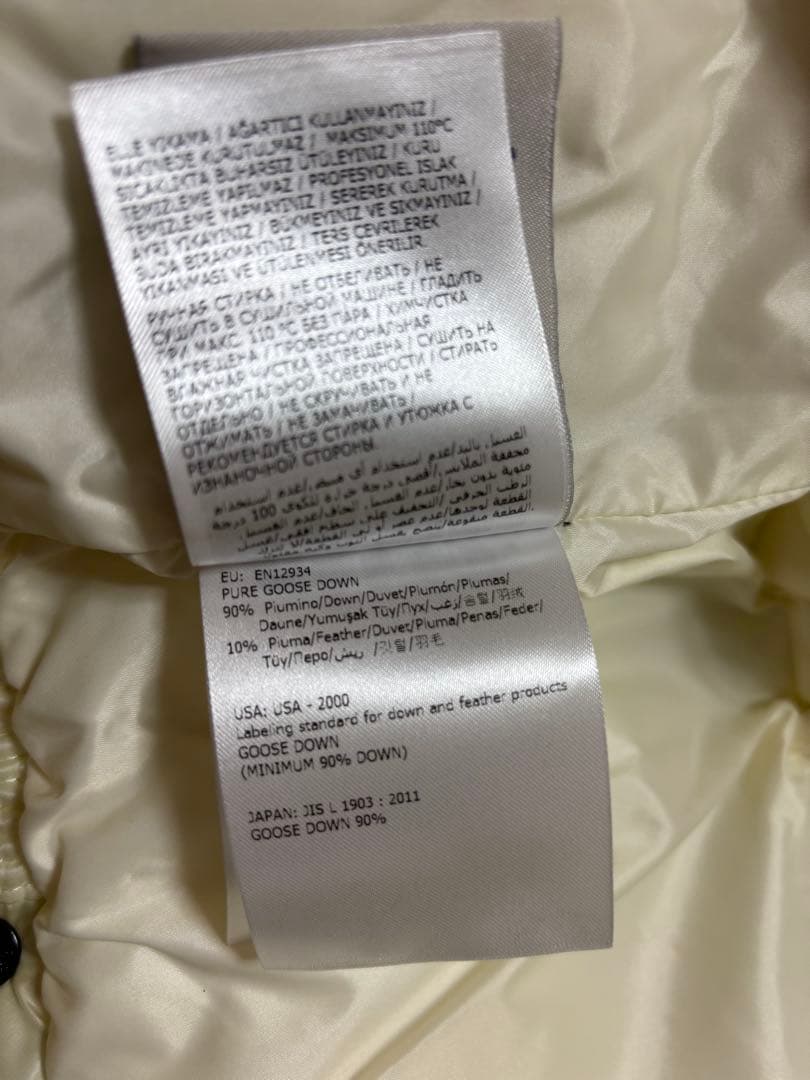 ELLE YIKAMA / AĞARTICI KULLANMAYINIZ /
MAKİNEDE KURUTULMAZ / MAKSIMUM 110°C
SICAKLIKTA BUHARSIZ ÜTÜLEYİNİZ / KURU
TEMİZLEME YAPILMAZ / PROFESYONEL ISLAK
TEMİZLEME YAPMAYINIZ / SEREREK KURUTMA /
AYRI YIKAYINIZ / BÜKMEYİNİZ VE SIKMAYINIZ /
SUDA BIRAKMAYINIZ / TERS ÇEVRİLEREK
YIKANMASI VE ÜTÜLENMESİ ÖNERİLİR.
РУЧНАЯ СТИРКА / НЕ ОТБЕЛИВАТЬ / НЕ
СУШИТЬ В СУШИЛЬНОЙ МАШИНЕ / ГЛАДИТЬ
ПРИ МАКС. 110 °C БЕЗ ПАРА / ХИМЧИСТКА
ЗАПРЕЩЕНА / ПРОФЕССИОНАЛЬНАЯ
ВЛАЖНАЯ ЧИСТКА ЗАПРЕЩЕНА / СУШИТЬ НА
ГОРИЗОНТАЛЬНОЙ ПОВЕРХНОСТИ / СТИРАТЬ
ОТДЕЛЬНО / НЕ СКРУЧИВАТЬ / НЕ
ОТЖИМАТЬ / НЕ ЗАМАЧИВАТЬ /
РЕКОМЕНДУЕТСЯ СТИРКА И УТЮЖКА С
ИЗНАНОЧНОЙ СТОРОНЫ.
الغسيل باليد/عدم استخدام أي مبيض/عدم استخدام
مجففة الملابس/أقصى درجة حرارة للكوي 100 درجة
مئوية بدون بخار/عدم الغسيل الجاف/عدم الغسيل
الرطب الحرفي/التجفيف على سطح أفقي/غسيل
القطعة لوحدها/عدم عصر أو لي القطعة/
EU: EN12934
PURE GOOSE DOWN
90% Piumino/Down/Duvet/Plumón/Plumas/
Daune/Yumuşak Tüy/Пух/زغب/솜털/羽绒
10% Piuma/Feather/Duvet/Pluma/Penas/Feder/
Tüy/Перо/ريش /깃털/羽毛
USA: USA - 2000
Labeling standard for down and feather products
GOOSE DOWN
(MINIMUM 90% DOWN)
JAPAN: JIS L 1903 : 2011
GOOSE DOWN 90%